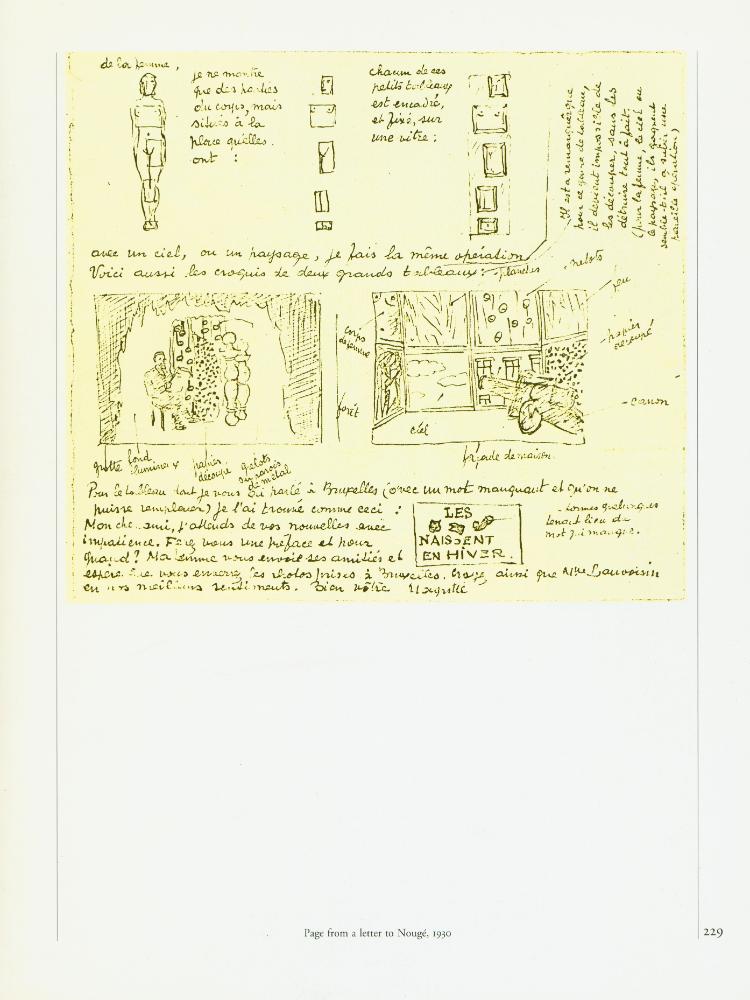 de la femme,
je ne montre
que des parties
du corps, mais
situées à la
place qu'elles.
ont :
chacun de ces
petits tableaux
est encadré,
et fixé, sur
une vitre :
Il est à remarquer que
pour ce genre de tableau,
il devient impossible de
les découper, sans les
détruire tout à fait.
(pour la femme, le ciel ou
le paysage, ils gagnent
semble-t-il à subir une
pareille opération)
avec un ciel, ou un paysage, je fais la même opération
Voici aussi les croquis de deux grands tableaux :
planches
grelots
feu
papier
découpé
canon
corps
de femme
forêt
ciel
façade de maison.
grotte
fond
lumineux
papier
découpé
grelots
sur parois
de métal
Pour le tableau dont je vous ai parlé à Bruxelles (avec un mot manquant et qu'on ne
puisse remplacer) je l'ai trouvé comme ceci :
LES
NAISSENT
EN HIVER.
formes quelconques
tenant lieu du
mot qui manque.
Mon cher ami, j'attends de vos nouvelles avec
impatience. Ferez vous une préface et pour
quand ? Ma femme vous envoie ses amitiés et
espère que vous enverrez les photos prises à Bruxelles. Croyez, ainsi que Mlle Lauvoisin
en mes meilleurs sentiments. Bien vôtre Magritte
Page from a letter to Nougé, 1930
229